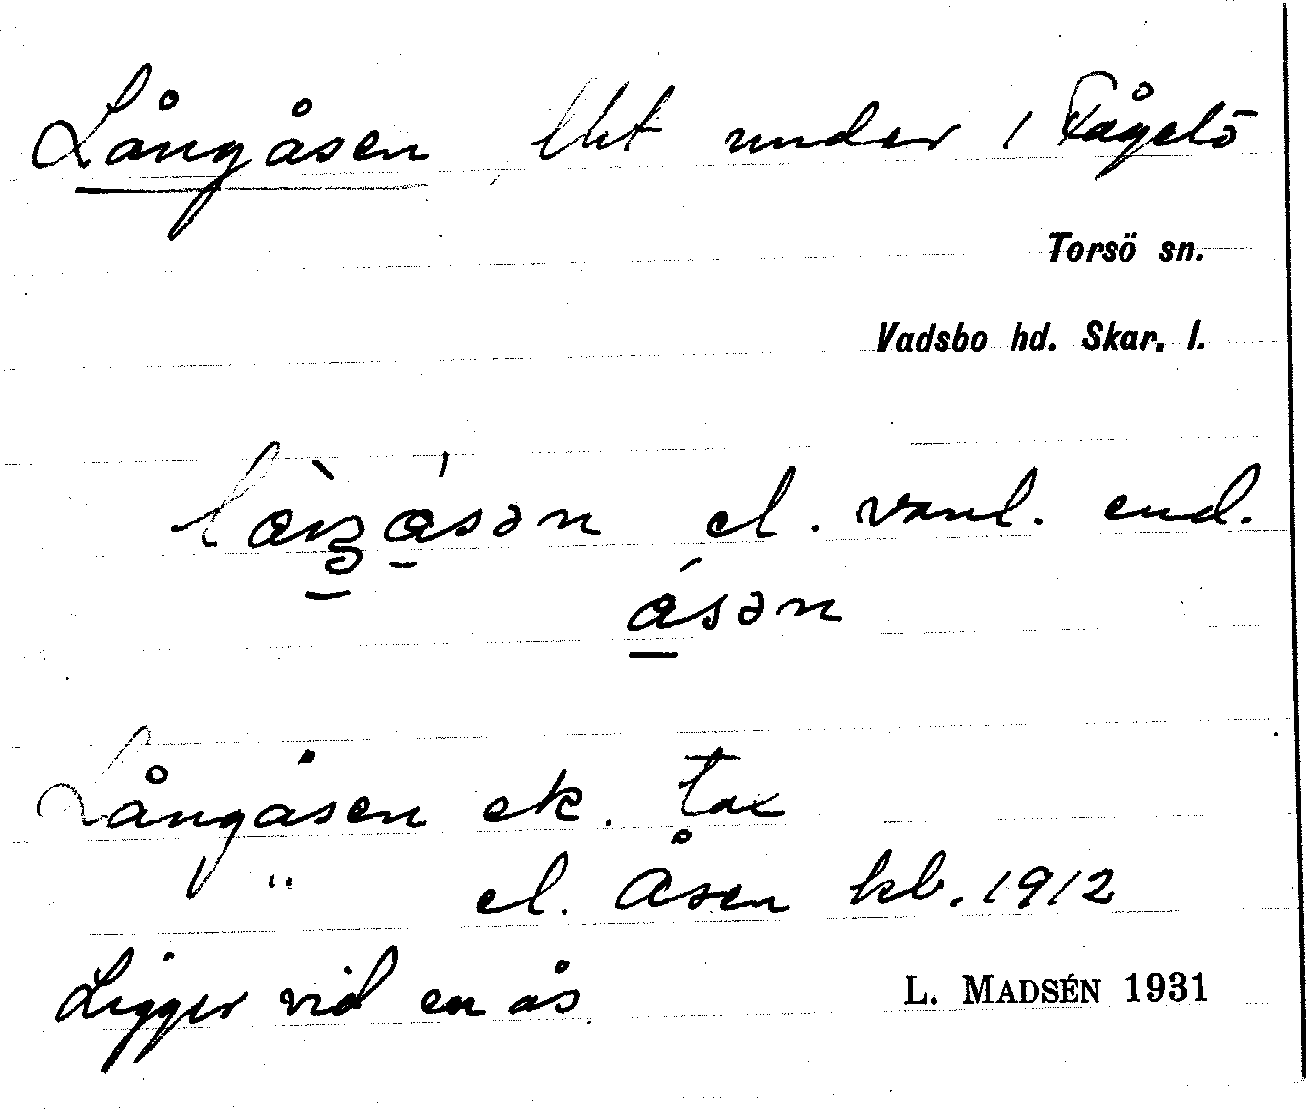 Långåsen lht under 1 Fågelö
Torsö sn.
Vadsbo hd. Skar. l.
el. vanl. end.
åsən
Långåsen ek. tax
" el. Åsen kb. 1912
Ligger vid en ås
L. MADSÉN 1931